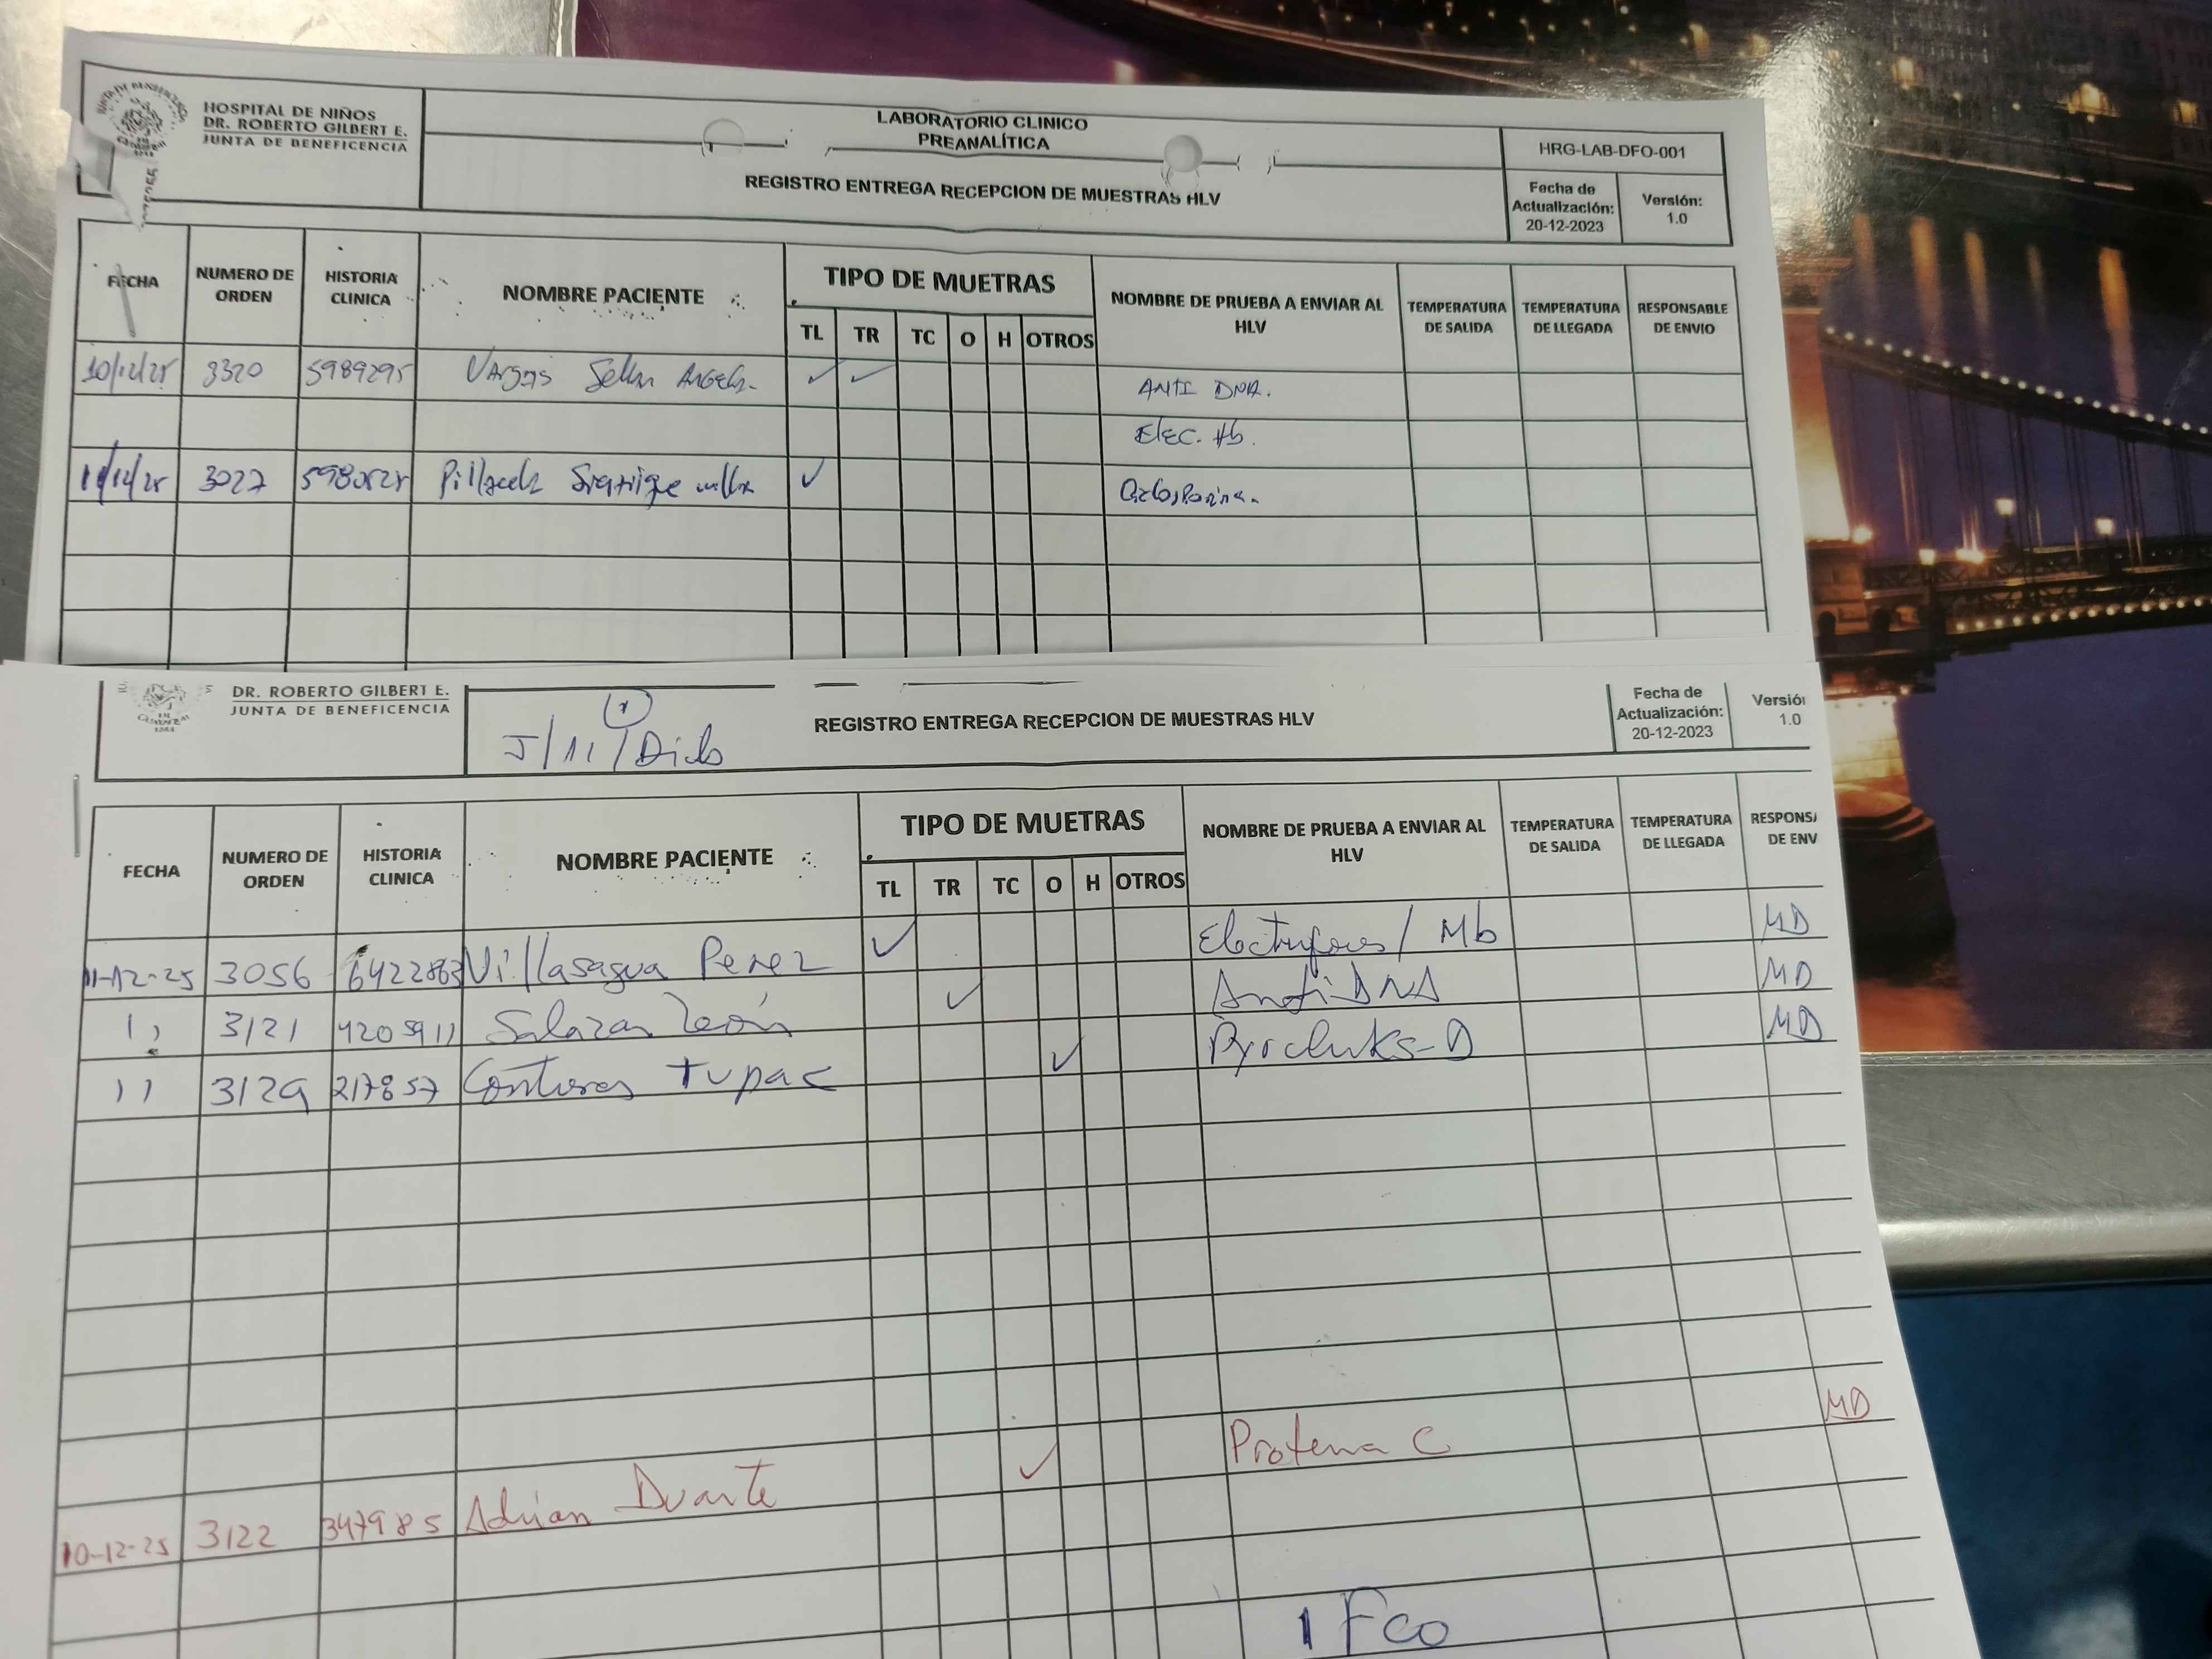 HOSPITAL DE NIÑOS
DR. ROBERTO GILBERT E.
JUNTA DE BENEFICENCIA
LABORATORIO CLINICO
PREANALÍTICA
REGISTRO ENTREGA RECEPCION DE MUESTRAS HLV
HRG-LAB-DFO-001
Fecha de Actualización: 20-12-2023
Versión: 1.0
FECHA NUMERO DE ORDEN HISTORIA CLINICA NOMBRE PACIENTE TIPO DE MUETRAS NOMBRE DE PRUEBA A ENVIAR AL HLV TEMPERATURA DE SALIDA TEMPERATURA DE LLEGADA RESPONSABLE DE ENVIO
TL TR TC O H OTROS
10/12/25 3320 5989295 Vargas ✓ ✓ ANTI DNA.
Elec. Hb.
11/12/25 3027 ✓
DR. ROBERTO GILBERT E.
JUNTA DE BENEFICENCIA
J/11/Dicb
REGISTRO ENTREGA RECEPCION DE MUESTRAS HLV
Fecha de Actualización: 20-12-2023
Versió 1.0
FECHA NUMERO DE ORDEN HISTORIA CLINICA NOMBRE PACIENTE TIPO DE MUETRAS NOMBRE DE PRUEBA A ENVIAR AL HLV TEMPERATURA DE SALIDA TEMPERATURA DE LLEGADA RESPONSA DE ENV
TL TR TC O H OTROS
11-12-25 3056 6422863 Villasagua Perez ✓ / Mb MD
11 3121 4205911 Salazar León ✓ Anti DNA MD
11 3129 217857 Tupac ✓ MD
10-12-25 3122 347985 Adrian Duarte ✓ Protena C MD
1 Fco